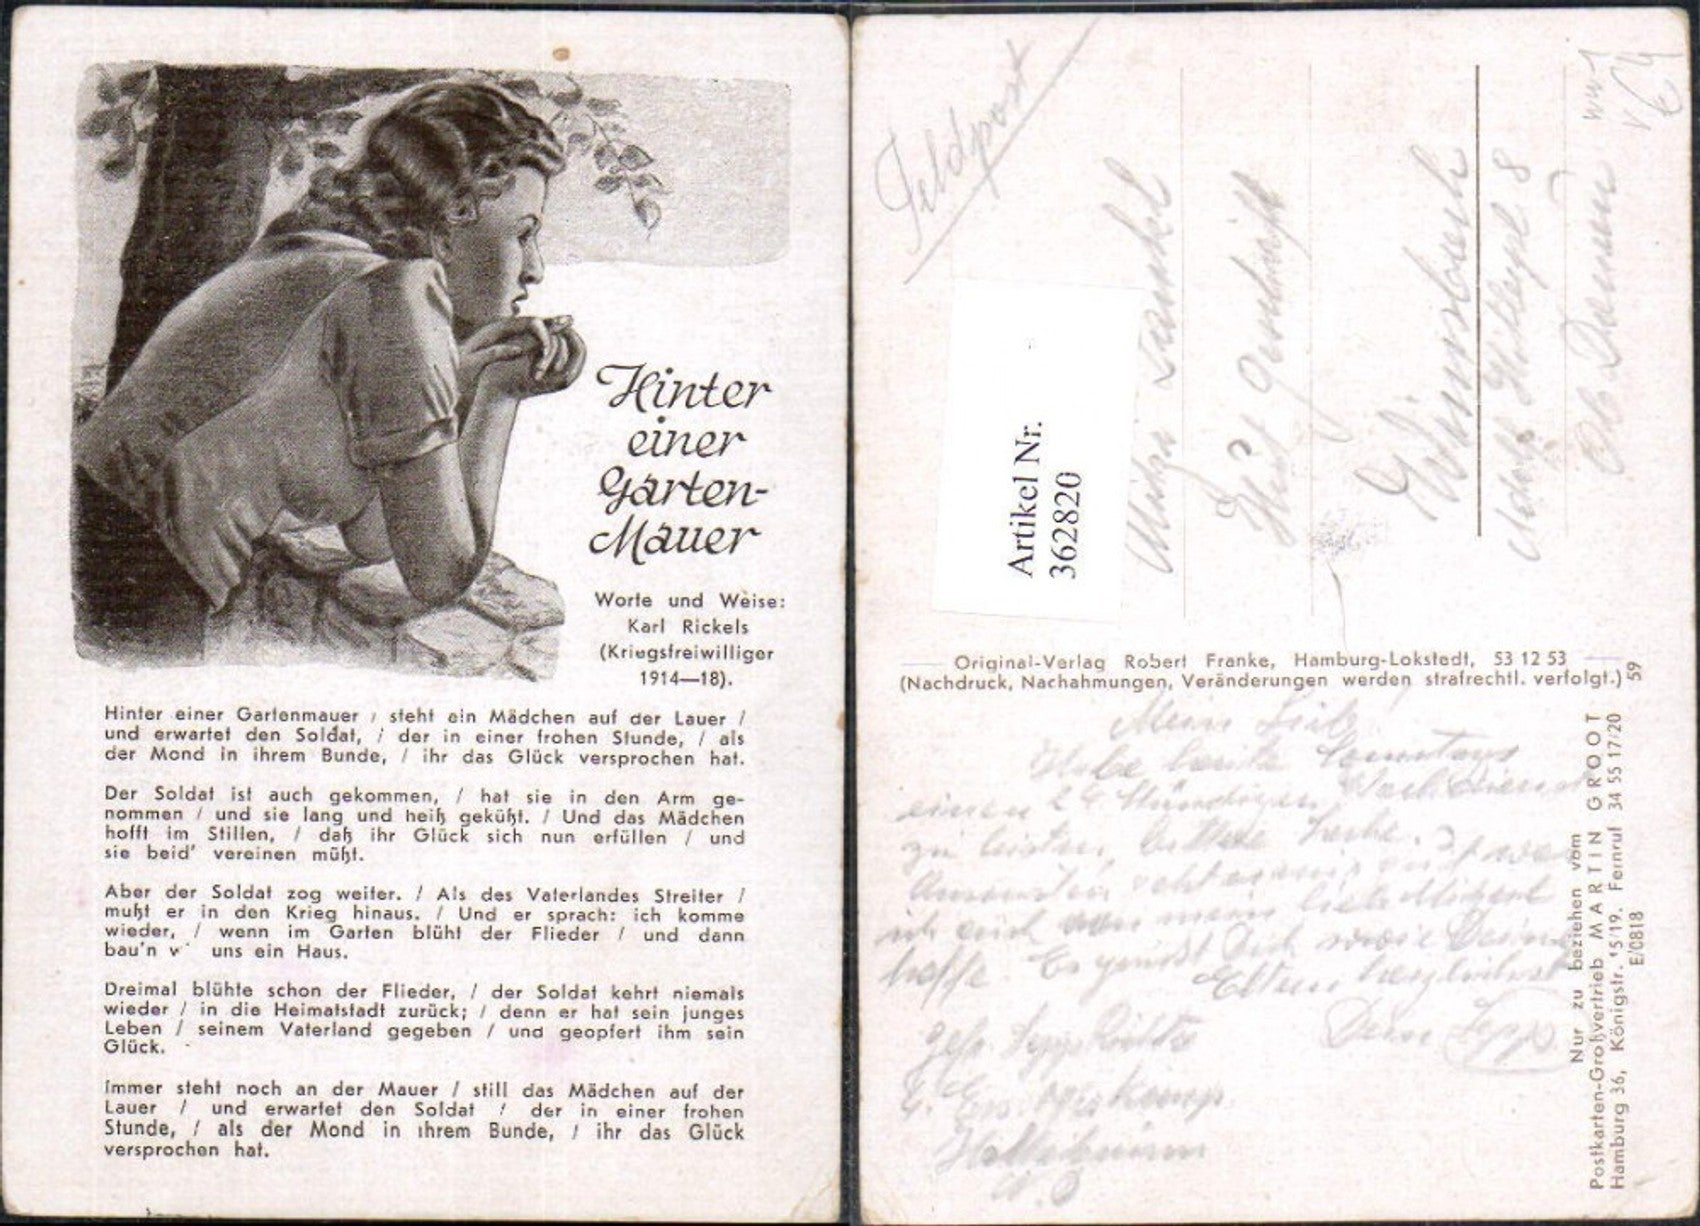 Hinter
einer
Garten-
Mauer
Worte und Weise:
Karl Rickels
(Kriegsfreiwilliger
1914—18).
Hinter einer Gartenmauer / steht ein Mädchen auf der Lauer /
und erwartet den Soldat, / der in einer frohen Stunde, / als
der Mond in ihrem Bunde, / ihr das Glück versprochen hat.
Der Soldat ist auch gekommen, / hat sie in den Arm ge-
nommen / und sie lang und heiß geküßt. / Und das Mädchen
hofft im Stillen, / daß ihr Glück sich nun erfüllen / und
sie beid' vereinen müßt.
Aber der Soldat zog weiter. / Als des Vaterlandes Streiter /
mußt er in den Krieg hinaus. / Und er sprach: ich komme
wieder, / wenn im Garten blüht der Flieder / und dann
bau'n w' uns ein Haus.
Dreimal blühte schon der Flieder, / der Soldat kehrt niemals
wieder / in die Heimatstadt zurück; / denn er hat sein junges
Leben / seinem Vaterland gegeben / und geopfert ihm sein
Glück.
Immer steht noch an der Mauer / still das Mädchen auf der
Lauer / und erwartet den Soldat / der in einer frohen
Stunde, / als der Mond in ihrem Bunde, / ihr das Glück
versprochen hat.
Feldpost
Artikel Nr.
362820
Hut Geschäft
Adolf Hitlerpl. 8
Ob. Donau
Original-Verlag Robert Franke, Hamburg-Lokstedt, 53 12 53
(Nachdruck, Nachahmungen, Veränderungen werden strafrechtl. verfolgt.)
59
Habe heute Sonntags
einen 24 Stündigen
zu leisten,
hoffe Es grüsst Dich sowie Deine
Eltern herzlichst
Dein Sepp
Nur zu beziehen vom
Postkarten-Großvertrieb MARTIN GROOT
Hamburg 36, Königstr. 15/19. Fernruf 34 55 17/20
E/0818